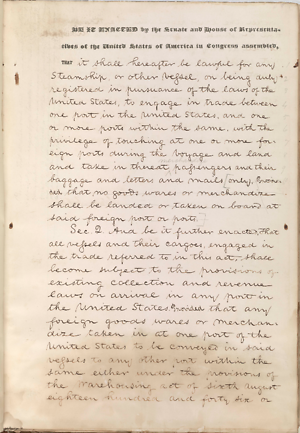 BE IT ENACTED by the Senate and House of Representa-
tives of the United States of America in Congress assembled,
THAT it shall hereafter be lawful for any
Steamship or other Vessel, on being duly
registered in pursuance of the laws of the
United States, to engage in trade between
one port in the United States, and one
or more ports within the same, with the
privilege of touching at one or more for-
eign ports during the voyage and land
and take in thereat passengers and their
baggage, and letters and mails only, Provi-
ded that no goods wares or merchandize
shall be landed or taken on board at
said foreign port or ports.
Sec 2. And be it further enacted, That
all vessels and their cargoes, engaged in
the trade referred to in this act, shall
become subject to the provisions of
existing collection and revenue
laws on arrival in any port in
the United States, Provided that any
foreign goods wares or merchan-
dize taken in at one port of the
United States to be conveyed in said
vessels to any other port within the
same either under the provisions of
the warehousing act of sixth August
eighteen hundred and forty six or